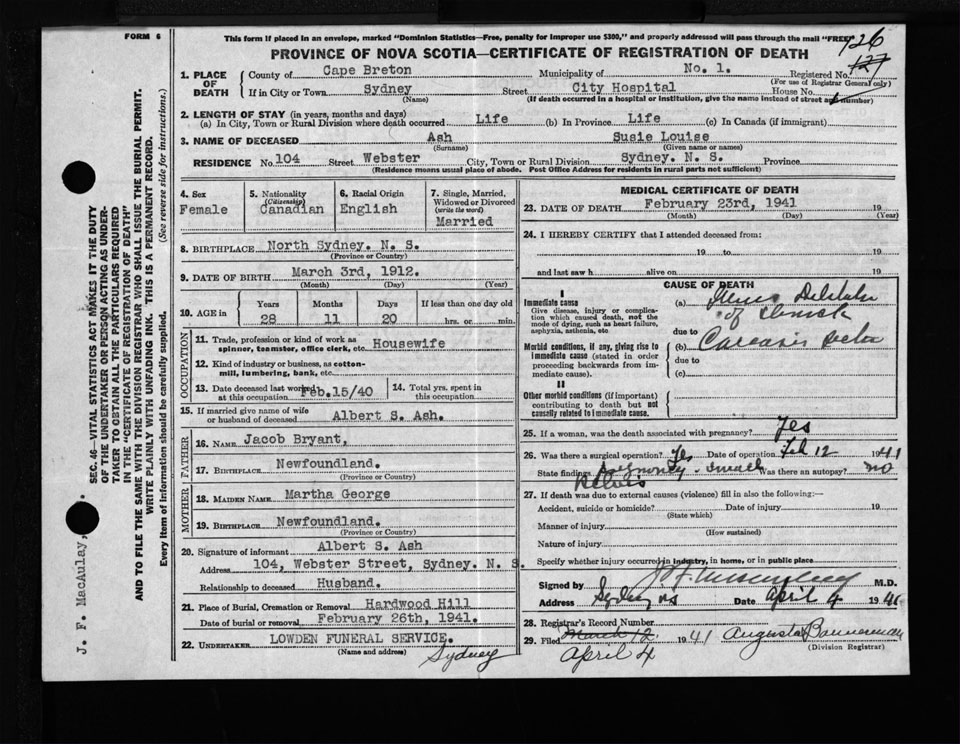 FORM 6
This form if placed in an envelope, marked "Dominion Statistics—Free, penalty for improper use $300," and properly addressed will pass through the mail "FREE"
PROVINCE OF NOVA SCOTIA—CERTIFICATE OF REGISTRATION OF DEATH
126
127
1. PLACE OF DEATH
County of Cape Breton Municipality of No. 1. Registered No.
(For use of Registrar General only)
If in City or Town Sydney Street City Hospital House No.
(Name) (If death occurred in a hospital or institution, give the name instead of street and number)
2. LENGTH OF STAY (in years, months and days)
(a) In City, Town or Rural Division where death occurred Life (b) In Province Life (c) In Canada (if immigrant)
3. NAME OF DECEASED Ash Susie Louise
(Surname) (Given name or names)
RESIDENCE No. 104 Street Webster City, Town or Rural Division Sydney. N. S. Province
(Residence means usual place of abode. Post Office Address for residents in rural parts not sufficient)
4. Sex Female
5. Nationality (Citizenship) Canadian
6. Racial Origin English
7. Single, Married, Widowed or Divorced (write the word) Married
8. BIRTHPLACE North Sydney. N. S.
(Province or Country)
9. DATE OF BIRTH March 3rd, 1912.
(Month) (Day) (Year)
10. AGE in Years Months Days If less than one day old
28 11 20 hrs. or min.
OCCUPATION
11. Trade, profession or kind of work as spinner, teamster, office clerk, etc. Housewife
12. Kind of industry or business, as cotton-mill, lumbering, bank, etc.
13. Date deceased last worked at this occupation Feb.15/40
14. Total yrs. spent in this occupation
15. If married give name of wife or husband of deceased Albert S. Ash.
FATHER
16. NAME Jacob Bryant,
17. BIRTHPLACE Newfoundland.
(Province or Country)
MOTHER
18. MAIDEN NAME Martha George
19. BIRTHPLACE Newfoundland.
(Province or Country)
20. Signature of informant Albert S. Ash
Address 104, Webster Street, Sydney. N. S.
Relationship to deceased Husband.
21. Place of Burial, Cremation or Removal Hardwood Hill
Date of burial or removal February 26th, 1941.
22. UNDERTAKER LOWDEN FUNERAL SERVICE.
(Name and address) Sydney
MEDICAL CERTIFICATE OF DEATH
23. DATE OF DEATH February 23rd, 1941 19
(Month) (Day) (Year)
24. I HEREBY CERTIFY that I attended deceased from:
19 to 19
and last saw h alive on 19
CAUSE OF DEATH
I
Immediate cause
Give disease, injury or complication which caused death, not the mode of dying, such as heart failure, asphyxia, asthenia, etc
(a)
of
due to
Morbid conditions, if any, giving rise to immediate cause (stated in order proceeding backwards from immediate cause).
(b)
due to
(c)
II
Other morbid conditions (if important) contributing to death but not causally related to immediate cause.
25. If a woman, was the death associated with pregnancy? Yes
26. Was there a surgical operation? Yes Date of operation Feb 12 1941
State findings Pelvis Was there an autopsy? no
27. If death was due to external causes (violence) fill in also the following:—
Accident, suicide or homicide? Date of injury 19
(State which)
Manner of injury
(How sustained)
Nature of injury
Specify whether injury occurred in industry, in home, or in public place
Signed by M.D.
Address Sydney NS Date April 4 1941
28. Registrar's Record Number
29. Filed March 12 1941 Augusta Bannerman
April 4 (Division Registrar)
SEC. 46—VITAL STATISTICS ACT MAKES IT THE DUTY
OF THE UNDERTAKER OR PERSON ACTING AS UNDER-
TAKER TO OBTAIN ALL THE PARTICULARS REQUIRED
IN THE "CERTIFICATE OF REGISTRATION OF DEATH"
AND TO FILE THE SAME WITH THE DIVISION REGISTRAR WHO SHALL ISSUE THE BURIAL PERMIT.
WRITE PLAINLY WITH UNFADING INK. THIS IS A PERMANENT RECORD.
Every item of information should be carefully supplied. (See reverse side for instructions.)
J. F. MacAulay,